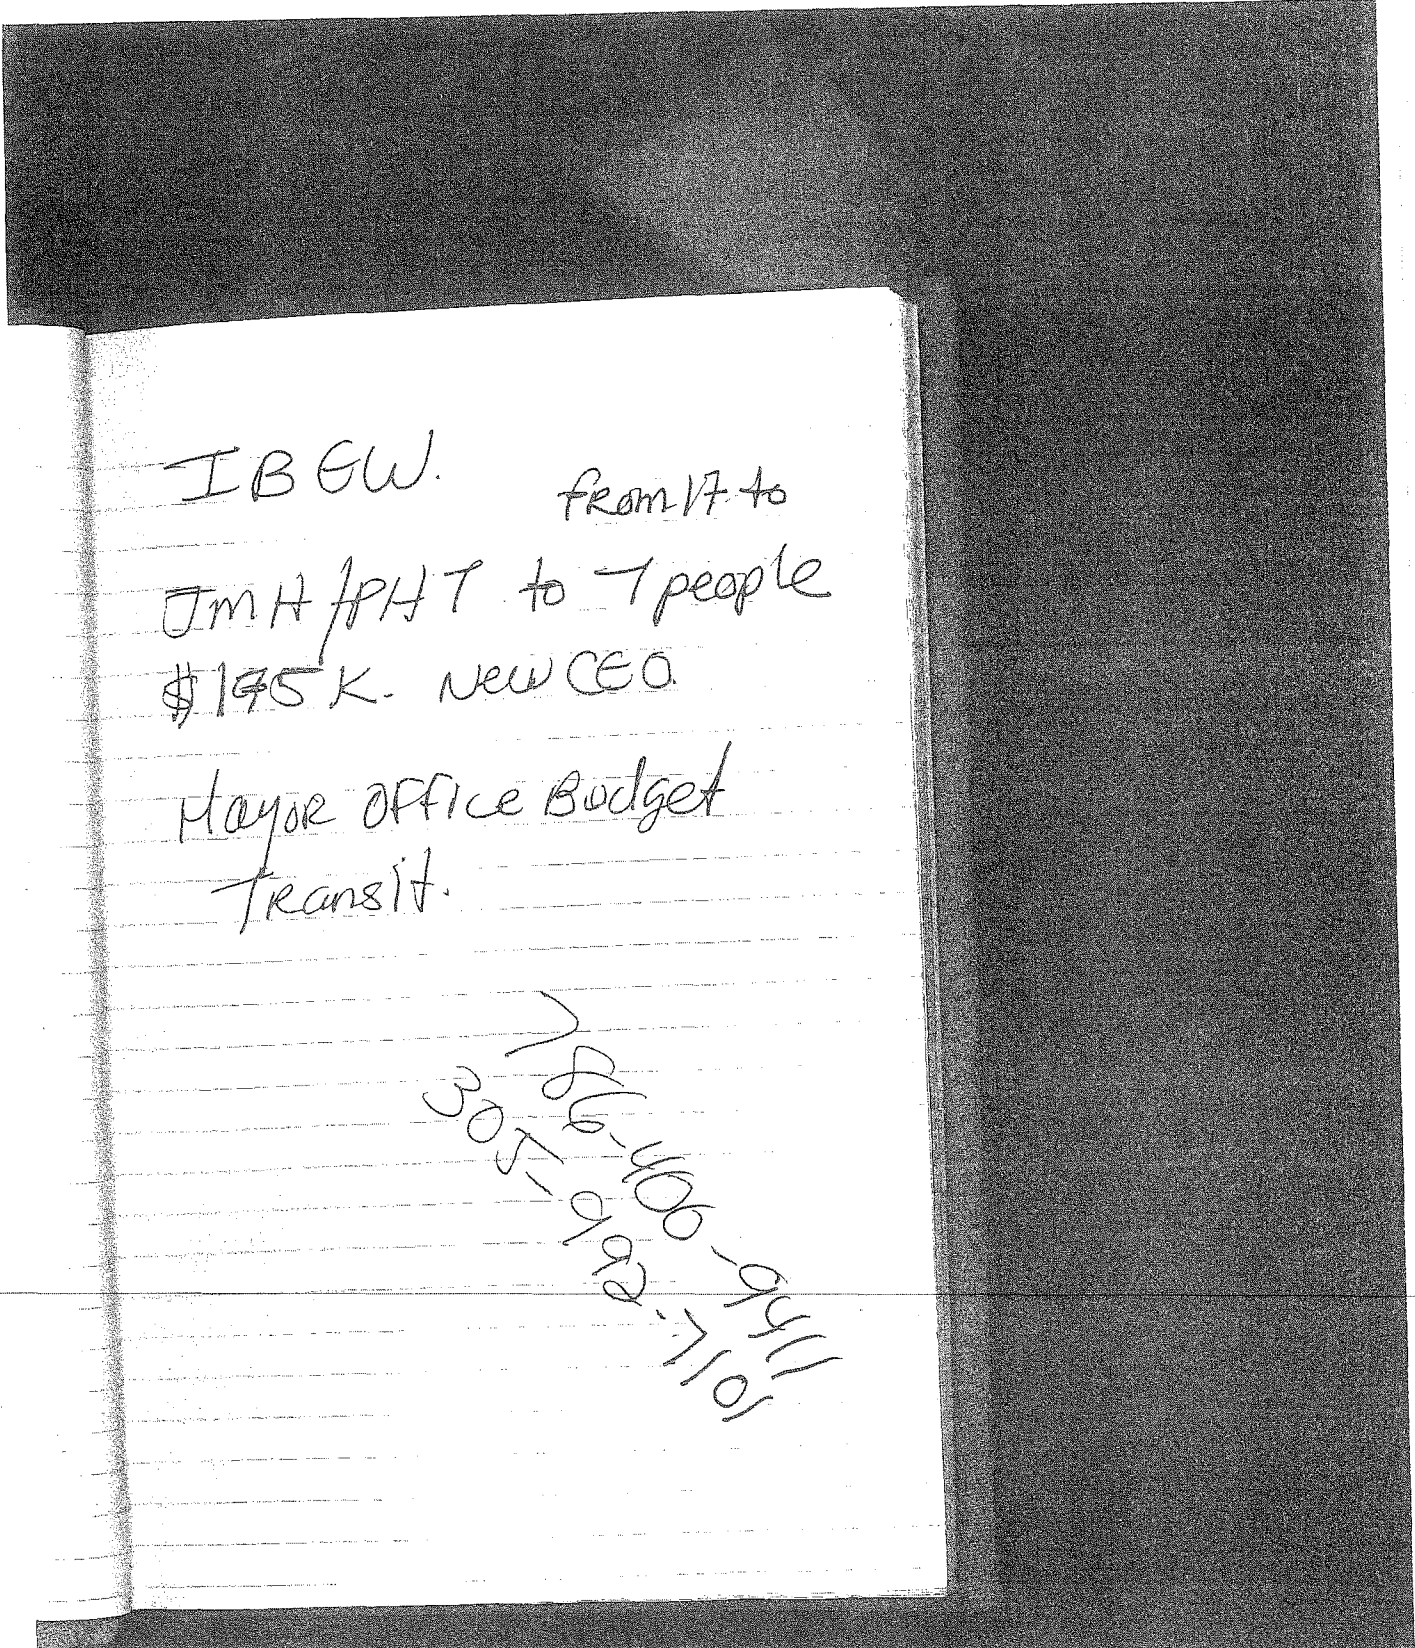 IBEW.
from 17 to
JMH/PHT to 7 people
$195K. New CEO.
Mayor Office Budget
Transit.
786-406-9511
305-992-7101